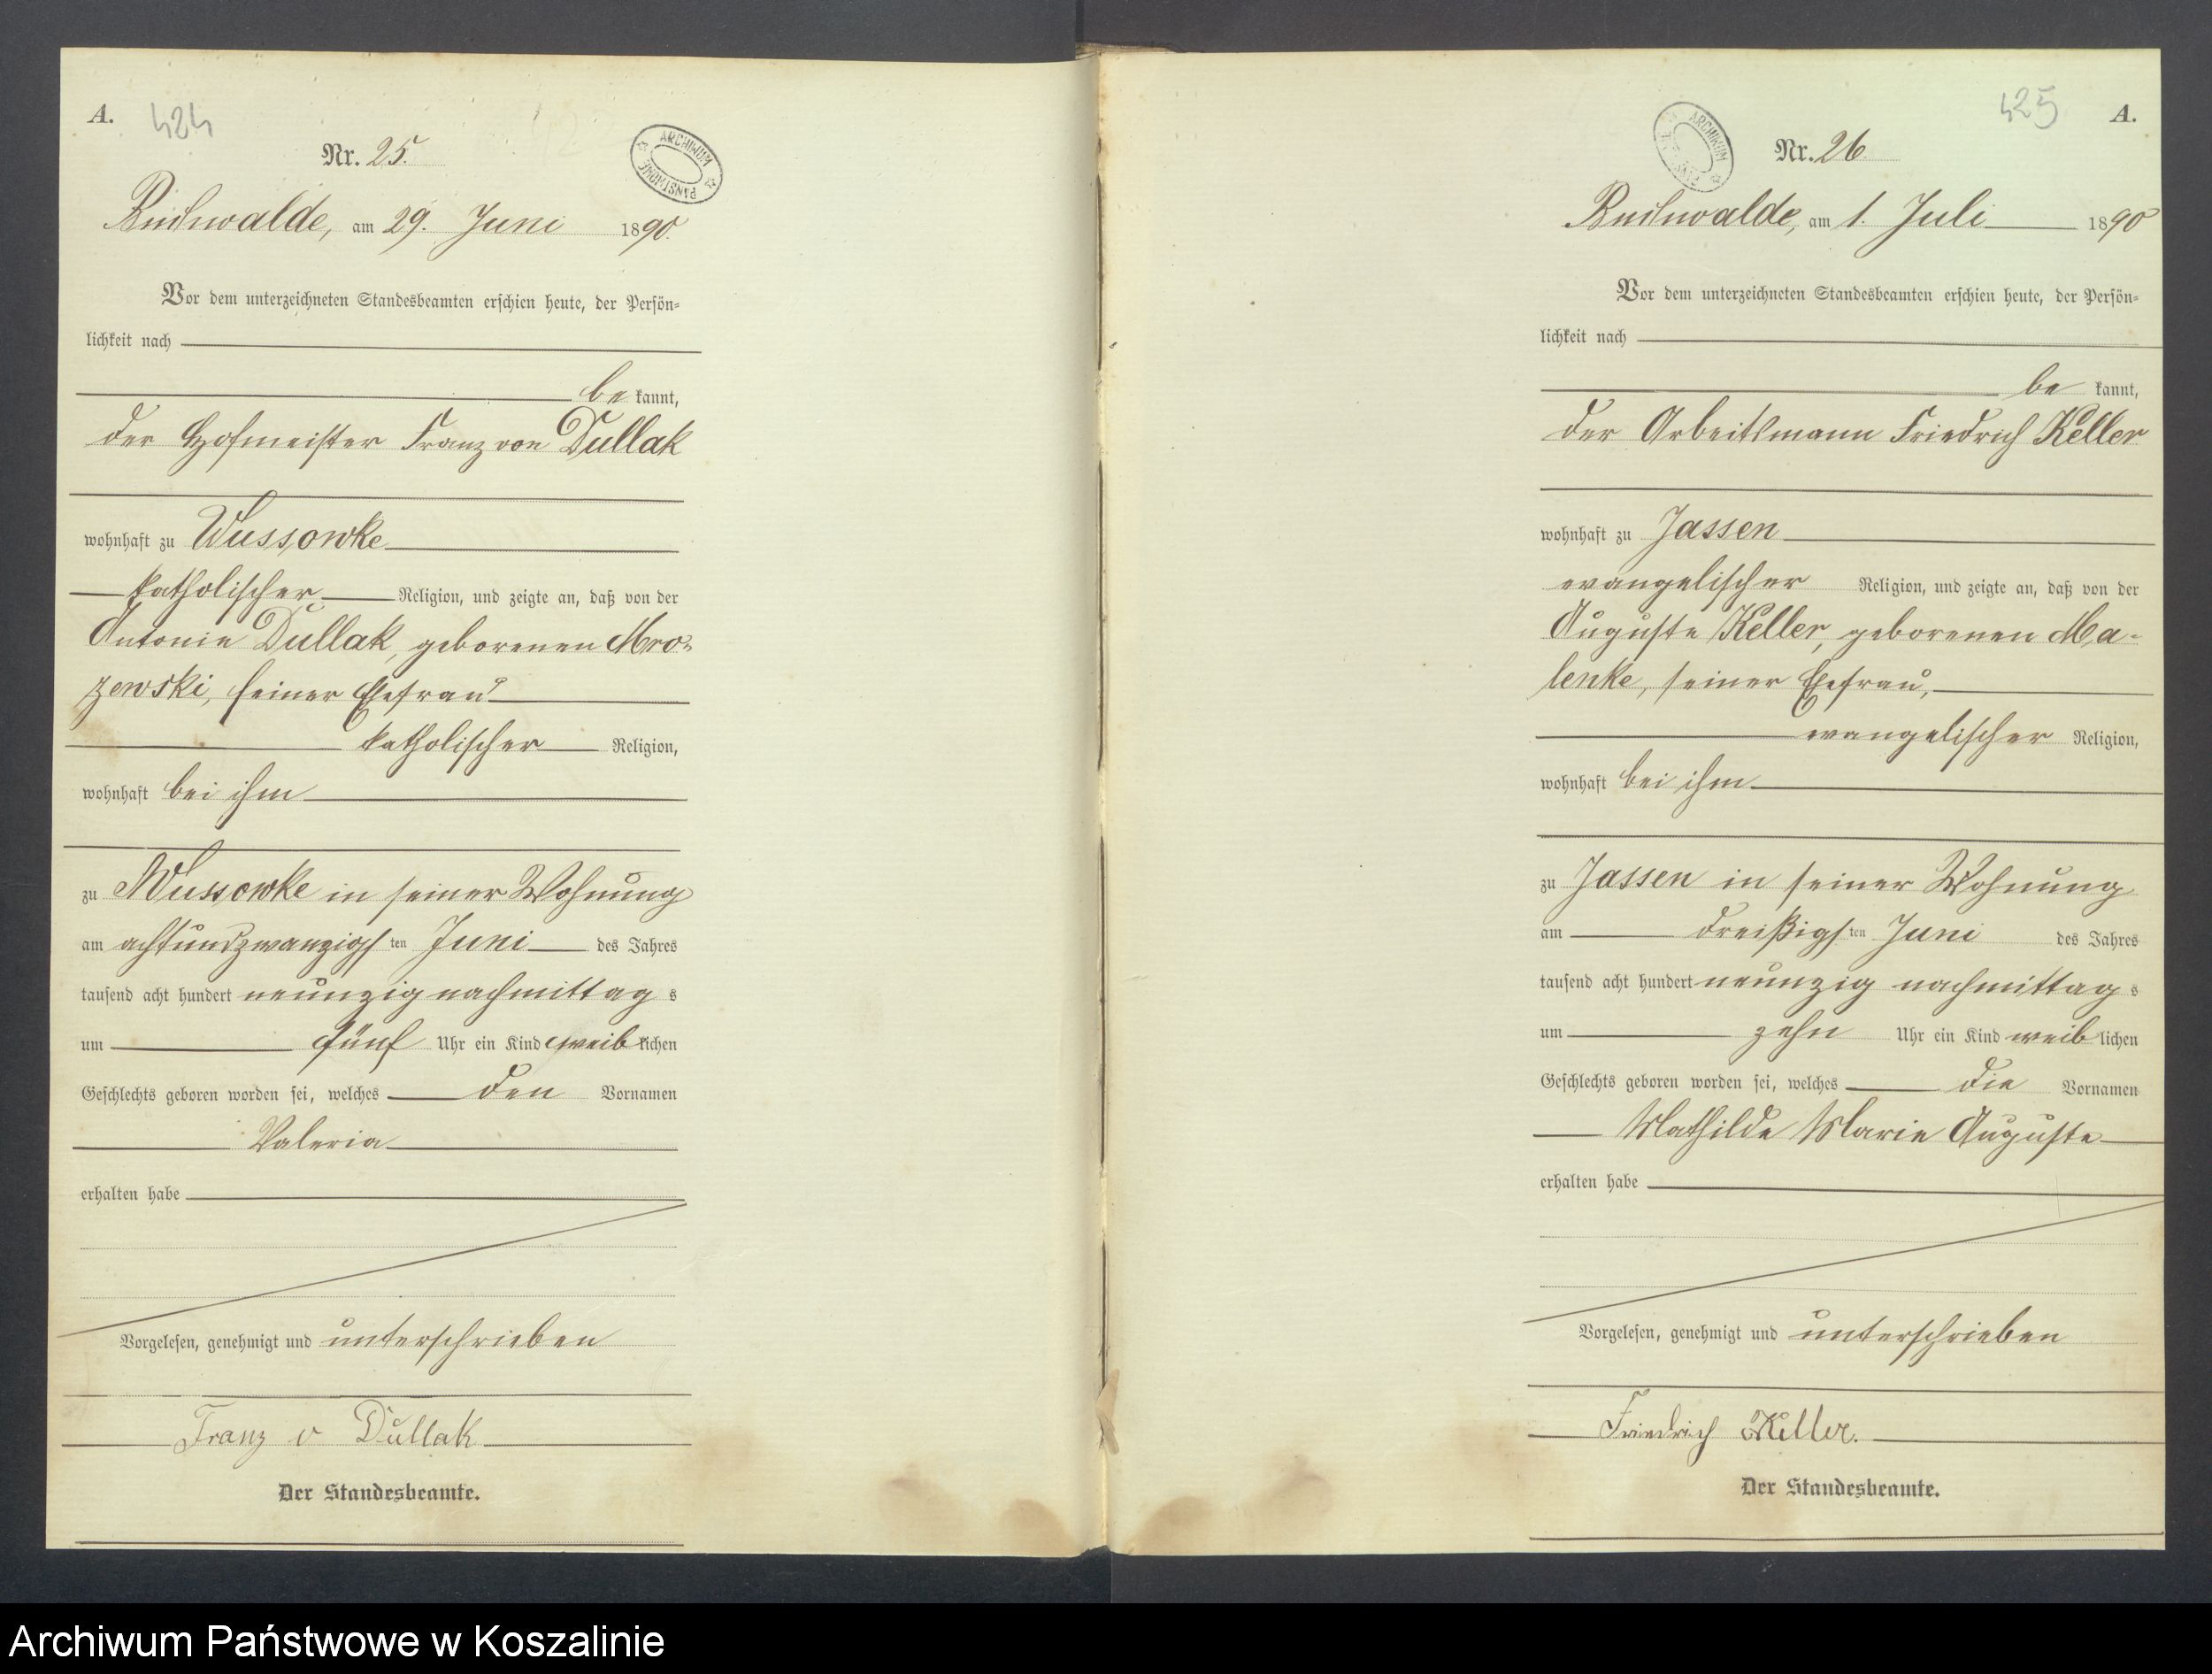 A.
424
Nr. 25.
ARCHIWUM PAŃSTWOWE
Buchwalde, am 29. Juni 1890.
Vor dem unterzeichneten Standesbeamten erschien heute, der Persön-
lichkeit nach
be kannt,
der Hofmeister Franz von Dullak
wohnhaft zu Wussowke
katholischer Religion, und zeigte an, daß von der
Antonie Dullak, geborenen Mro-
zewski, seiner Ehefrau
katholischer Religion,
wohnhaft bei ihm
zu Wussowke in seiner Wohnung
am achtundzwanzigsten Juni des Jahres
tausend acht hundert neunzig nachmittags
um fünf Uhr ein Kind weiblichen
Geschlechts geboren worden sei, welches den Vornamen
Valeria
erhalten habe
Vorgelesen, genehmigt und unterschrieben
Franz v Dullak
Der Standesbeamte.
425
A.
ARCHIWUM
Nr. 26.
Buchwalde, am 1. Juli 1890
Vor dem unterzeichneten Standesbeamten erschien heute, der Persön-
lichkeit nach
be kannt,
der Arbeitsmann Friedrich Keller
wohnhaft zu Jassen
evangelischer Religion, und zeigte an, daß von der
Auguste Keller, geborenen Ma-
lenke, seiner Ehefrau,
evangelischer Religion,
wohnhaft bei ihm
zu Jassen in seiner Wohnung
am dreißigsten Juni des Jahres
tausend acht hundert neunzig nachmittags
um zehn Uhr ein Kind weiblichen
Geschlechts geboren worden sei, welches die Vornamen
Mathilde Marie Auguste
erhalten habe
Vorgelesen, genehmigt und unterschrieben
Friedrich Keller.
Der Standesbeamte.
Archiwum Państwowe w Koszalinie